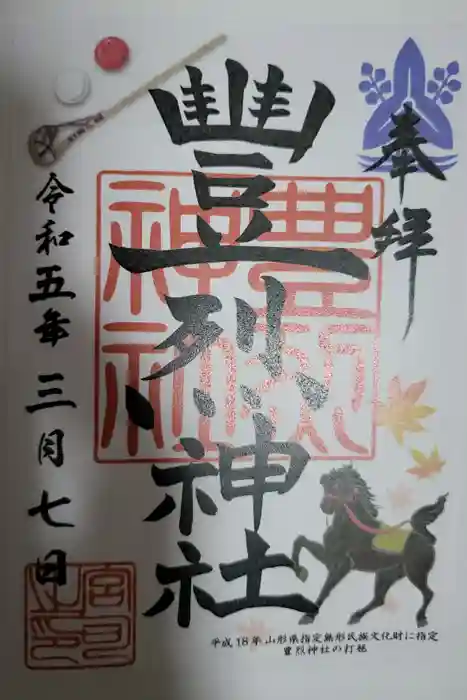 奉拝
豊烈神社
豊烈
神社
令和五年三月七日
平成18年山形県指定無形民族文化財に指定
豊烈神社の打毬